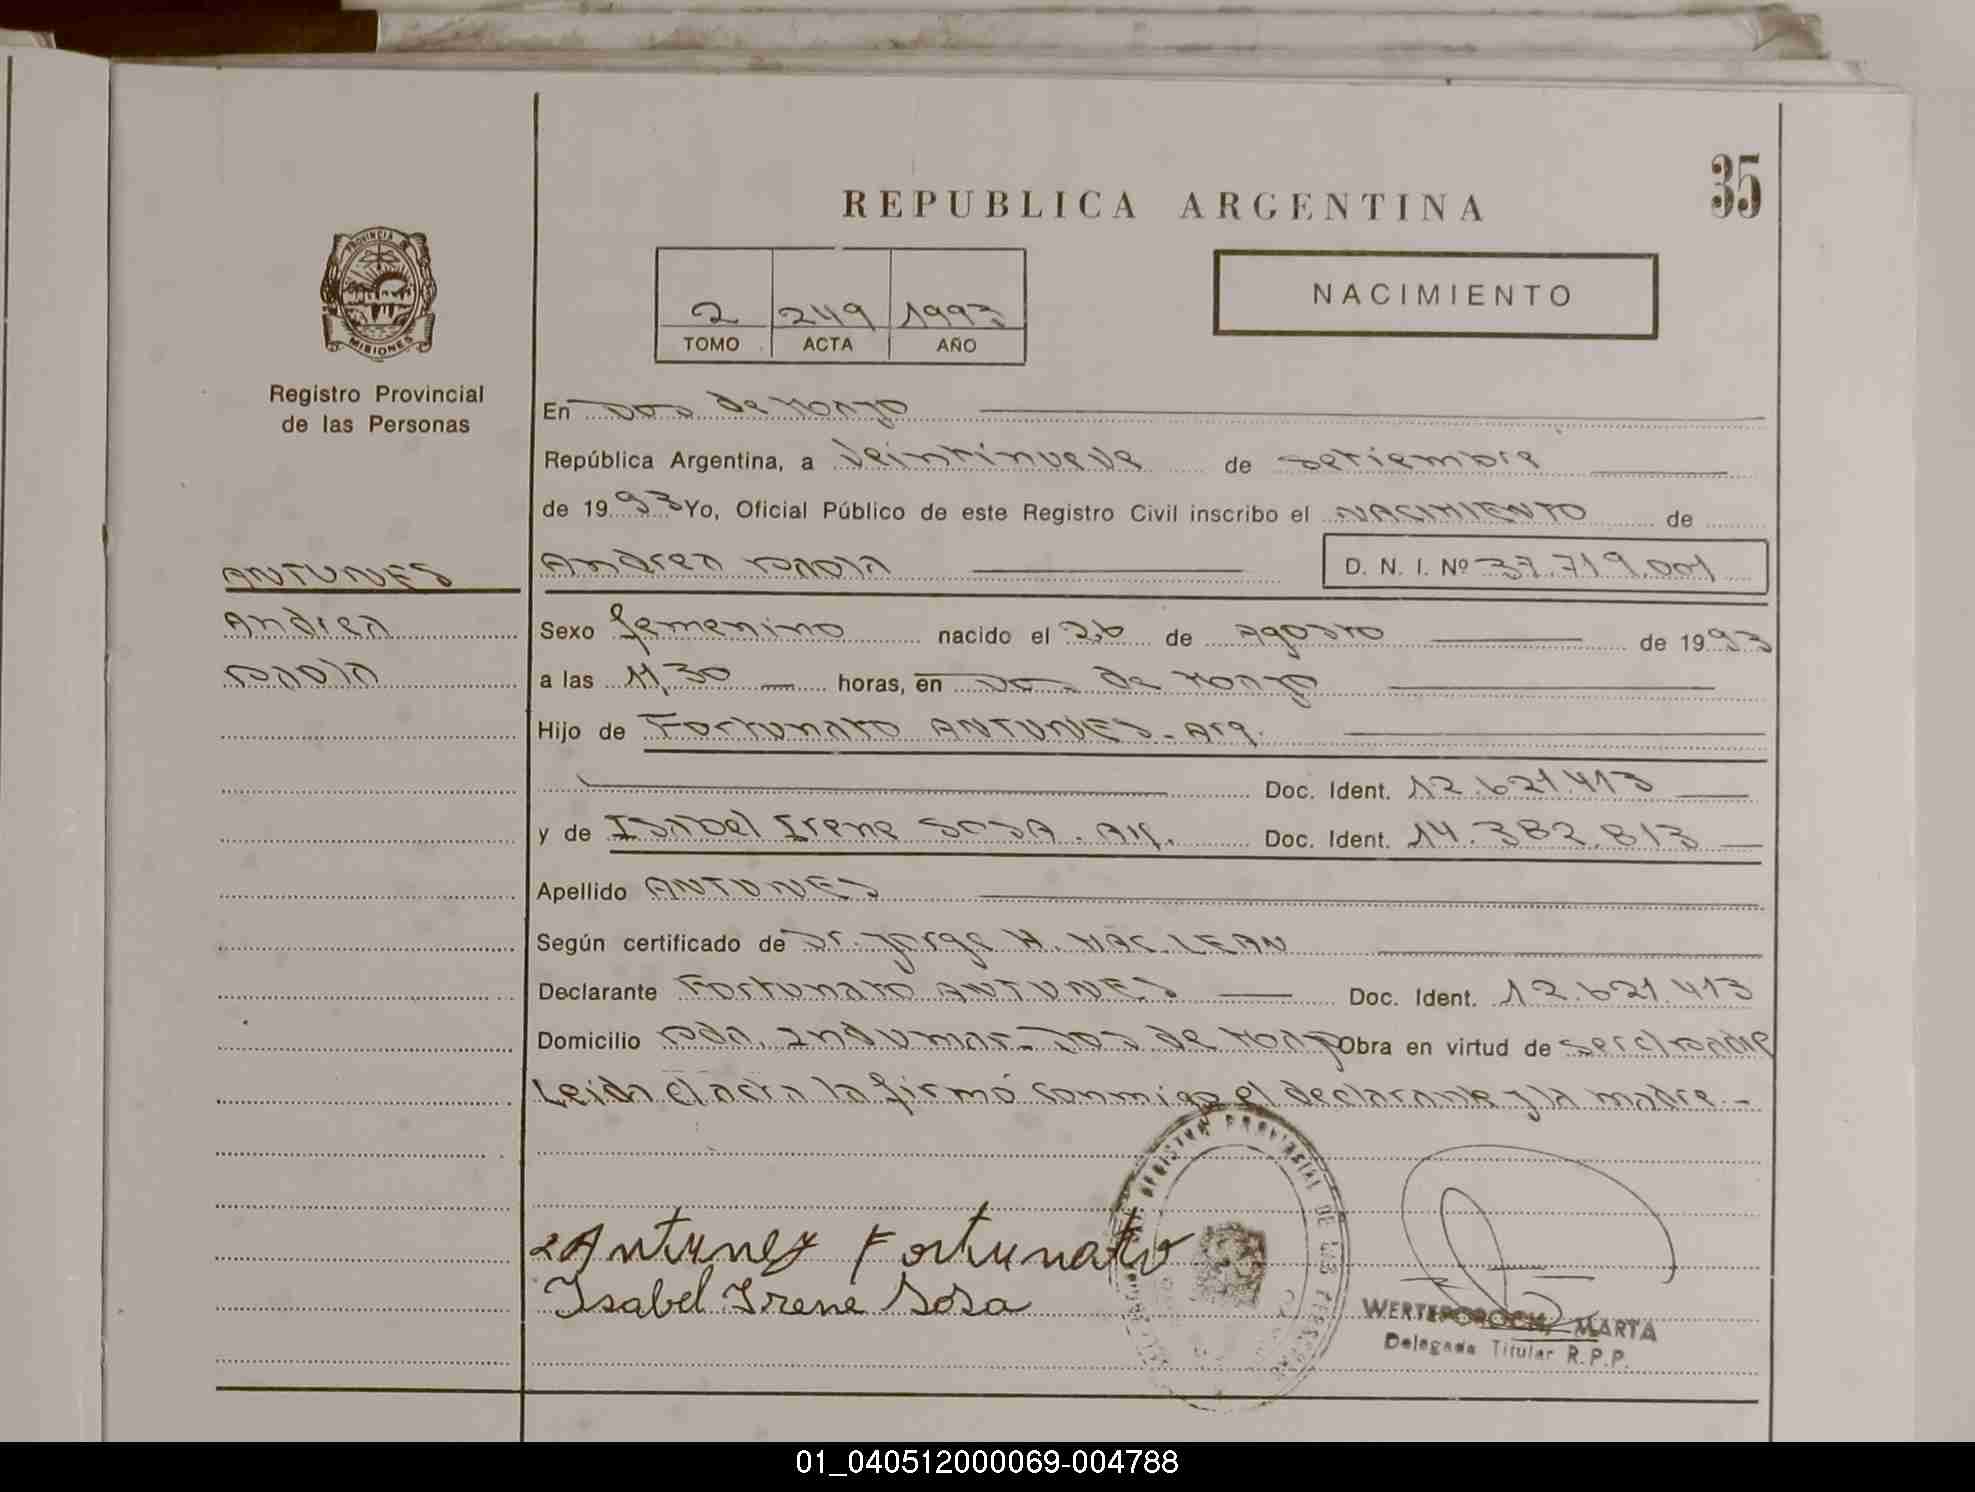 35
REPUBLICA ARGENTINA
PROVINCIA DE
MISIONES
Registro Provincial
de las Personas
2 249 1993
TOMO ACTA AÑO
NACIMIENTO
En Dos de Mayo
República Argentina, a veintinueve de setiembre
de 1993 Yo, Oficial Público de este Registro Civil inscribo el NACIMIENTO de
ANTUNES
Andrea
Paola
Andrea Paola D. N. I. Nº 37.719.001
Sexo femenino nacido el 26 de Agosto de 1993
a las 11,30 horas, en Dos de Mayo
Hijo de Fortunato ANTUNES - Arg.
Doc. Ident. 12.621.413
y de Isabel Irene SOSA - Arg. Doc. Ident. 14.382.813
Apellido ANTUNES
Según certificado de Dr. Jorge H. MAC LEAN
Declarante Fortunato ANTUNES Doc. Ident. 12.621.413
Domicilio Pda. Indumar - Dos de Mayo Obra en virtud de ser el padre
Leida el acta la firmó conmigo el declarante y la madre.-
REGISTRO PROVINCIAL DE LAS PERSONAS
Antunes Fortunato
Isabel Irene Sosa
WERTEPOROCH, MARTA
Delegada Titular R.P.P.
01_040512000069-004788